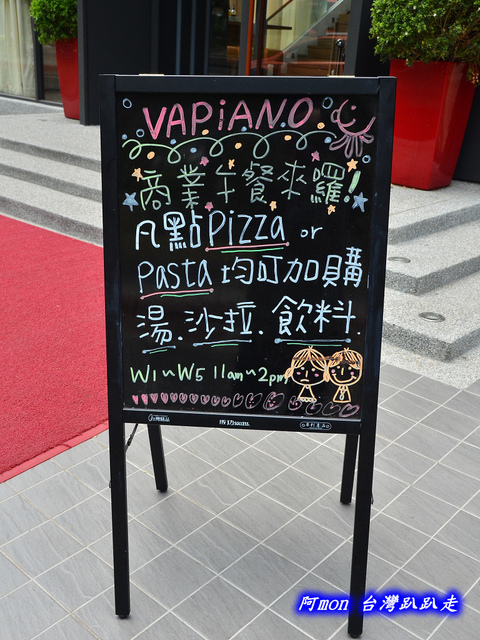 VAPiANO
商業午餐來囉!
凡點Pizza or
Pasta 均可加購
湯.沙拉.飲料.
W1~W5 11am~2pm
阿mon 台灣趴趴走